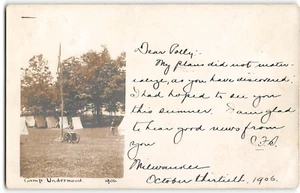 Dear Polly:-
My plans did not mater-
ialize, as you have discovered.
I had hoped to see you
this summer. I am glad
to hear good news from
you
C.F.B.
Milwaukee
October thirtieth, 1906.
Camp Underwood 1906